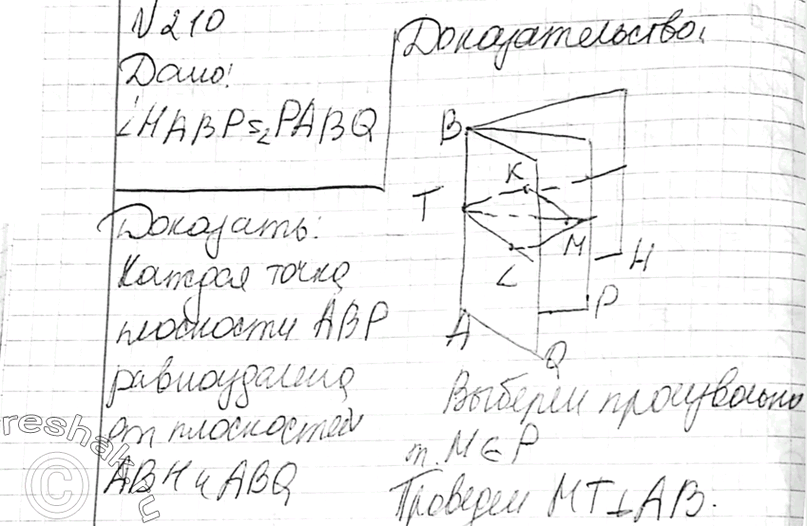 N210
Дано:
∠HABP=∠PABQ
Доказать:
Каждая точка
плоскости ABP
равноудалена
от плоскостей
ABH и ABQ
Доказательство:
B
K
T
M
L
H
P
A
Q
Выберем произвольно
т. M∈P
Проведем MT⊥AB.
reshak.ru
©